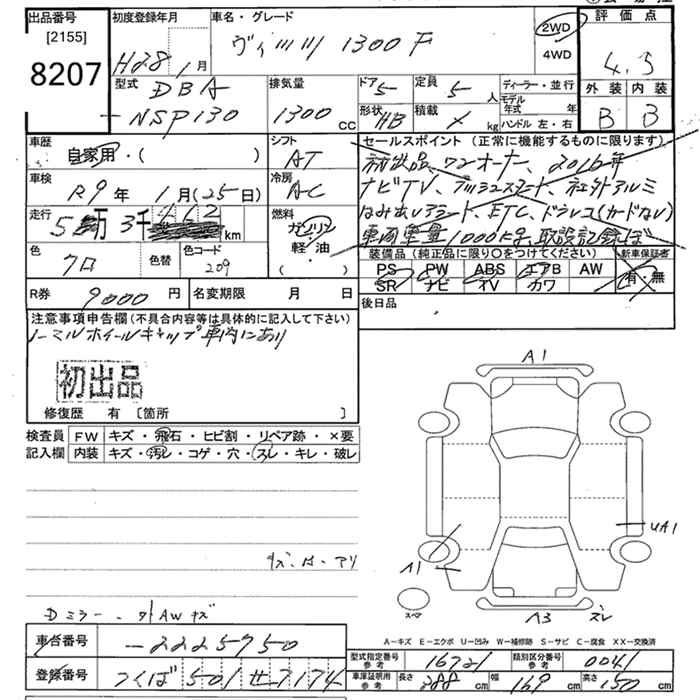 出品番号
[2155]
8207
初度登録年月
H28年 1月
車名・グレード
ヴィッツ 1300 F
2WD
4WD
評価点
4.5
外装 内装
B B
型式
DBA
-NSP130
排気量
1300 cc
ドア 5
定員 5 人
形状 HB
積載 kg
ディーラー・並行
モデル年式 年
ハンドル 左・右
車歴
自家用・( )
シフト
AT
車検
R9年 1月(25日)
冷房
AC
走行
5万 3千 km
燃料
ガソリン
軽・油
( )
色
クロ
色替
色コード
209
R券
9000円
名変期限 月 日
セールスポイント(正常に機能するものに限ります)
初出品、ワンオーナー、2016年
ナビTV、プッシュスタート、社外アルミ
はみ出しアシート、ETC、ドラレコ(カードなし)
車両重量1000kg、取説記録ぼ
装備品(純正品に限り○をつけてください)
新車保証書
PS PW ABS エアB AW
SR ナビ TV カワ
有・無
後日品
注意事項申告欄(不具合内容等は具体的に記入して下さい)
ノーマルホイールキャップ車内にあり
初出品
修復歴 有 [箇所 ]
検査員 FW キズ・飛石・ヒビ割・リペア跡・×要
記入欄 内装 キズ・汚レ・コゲ・穴・スレ・キレ・破レ
Dミラー、外AWキズ
A1
UA1
A1
A3 ズレ
スペア
A-キズ E-エクボ U-凹み W-補修跡 S-サビ C-腐食 XX-交換済
車台番号 -2225750
登録番号 つくば501せ7174
型式指定番号 参考 16721
類別区分番号 参考 0041
車庫証明用 参考 長さ 388cm 幅 169cm 高さ 150cm